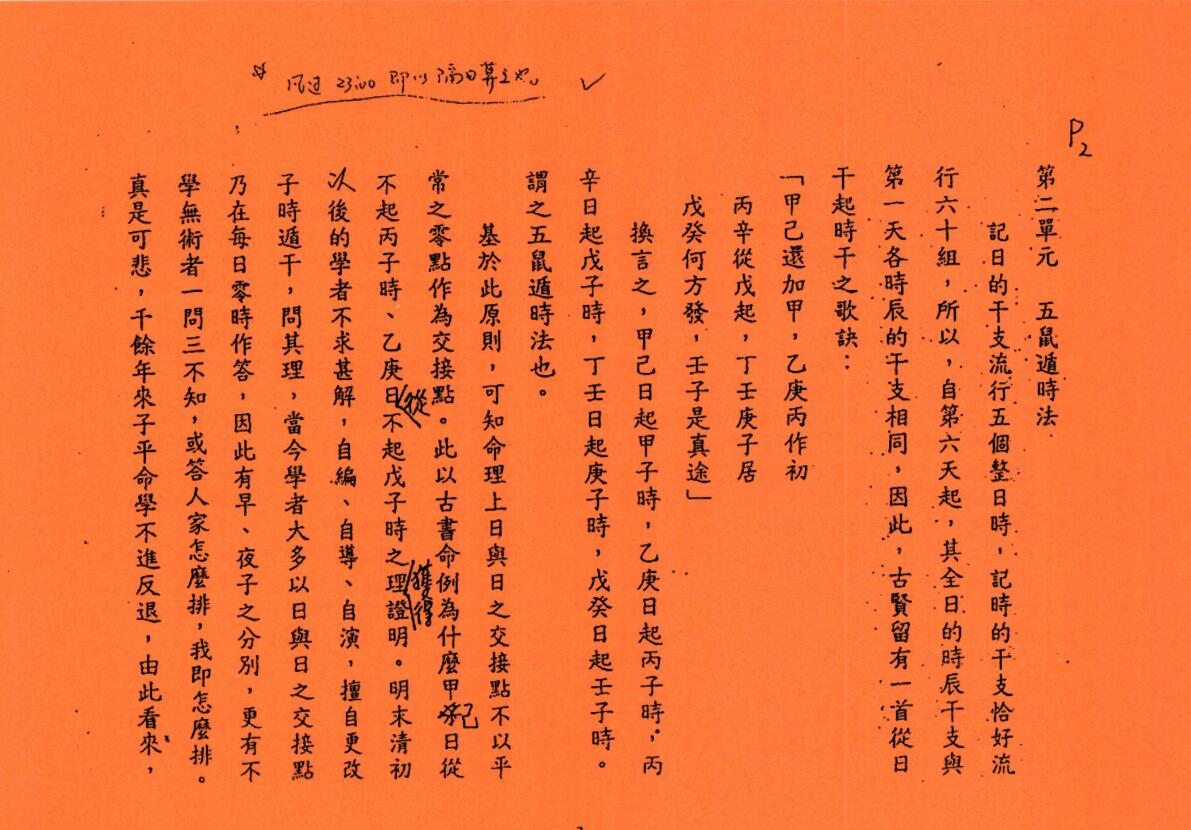 凡過 23:00 即以隔日算之也。
P2
第二單元　五鼠遁時法
記日的干支流行五個整日時，記時的干支恰好流
行六十組，所以，自第六天起，其全日的時辰干支與
第一天各時辰的干支相同，因此，古賢留有一首從日
干起時干之歌訣：
「甲己還加甲，乙庚丙作初
丙辛從戊起，丁壬庚子居
戊癸何方發，壬子是真途」
換言之，甲己日起甲子時，乙庚日起丙子時，丙
辛日起戊子時，丁壬日起庚子時，戊癸日起壬子時。
謂之五鼠遁時法也。
基於此原則，可知命理上日與日之交接點不以平
常之零點作為交接點。此以古書命例為什麼甲己日從
不起丙子時、乙庚日從不起戊子時之理獲得證明。明末清初
以後的學者不求甚解，自編、自導、自演，擅自更改
子時遁干，問其理，當今學者大多以日與日之交接點
乃在每日零時作答，因此有早、夜子之分別，更有不
學無術者一問三不知，或答人家怎麼排，我即怎麼排。
真是可悲，千餘年來子平命學不進反退，由此看來，